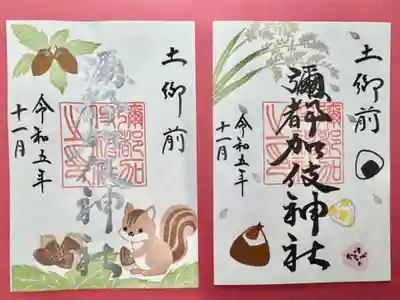 土御前
彌都加伎神社
令和五年
十一月
土御前
彌都加伎神社
令和五年
十一月